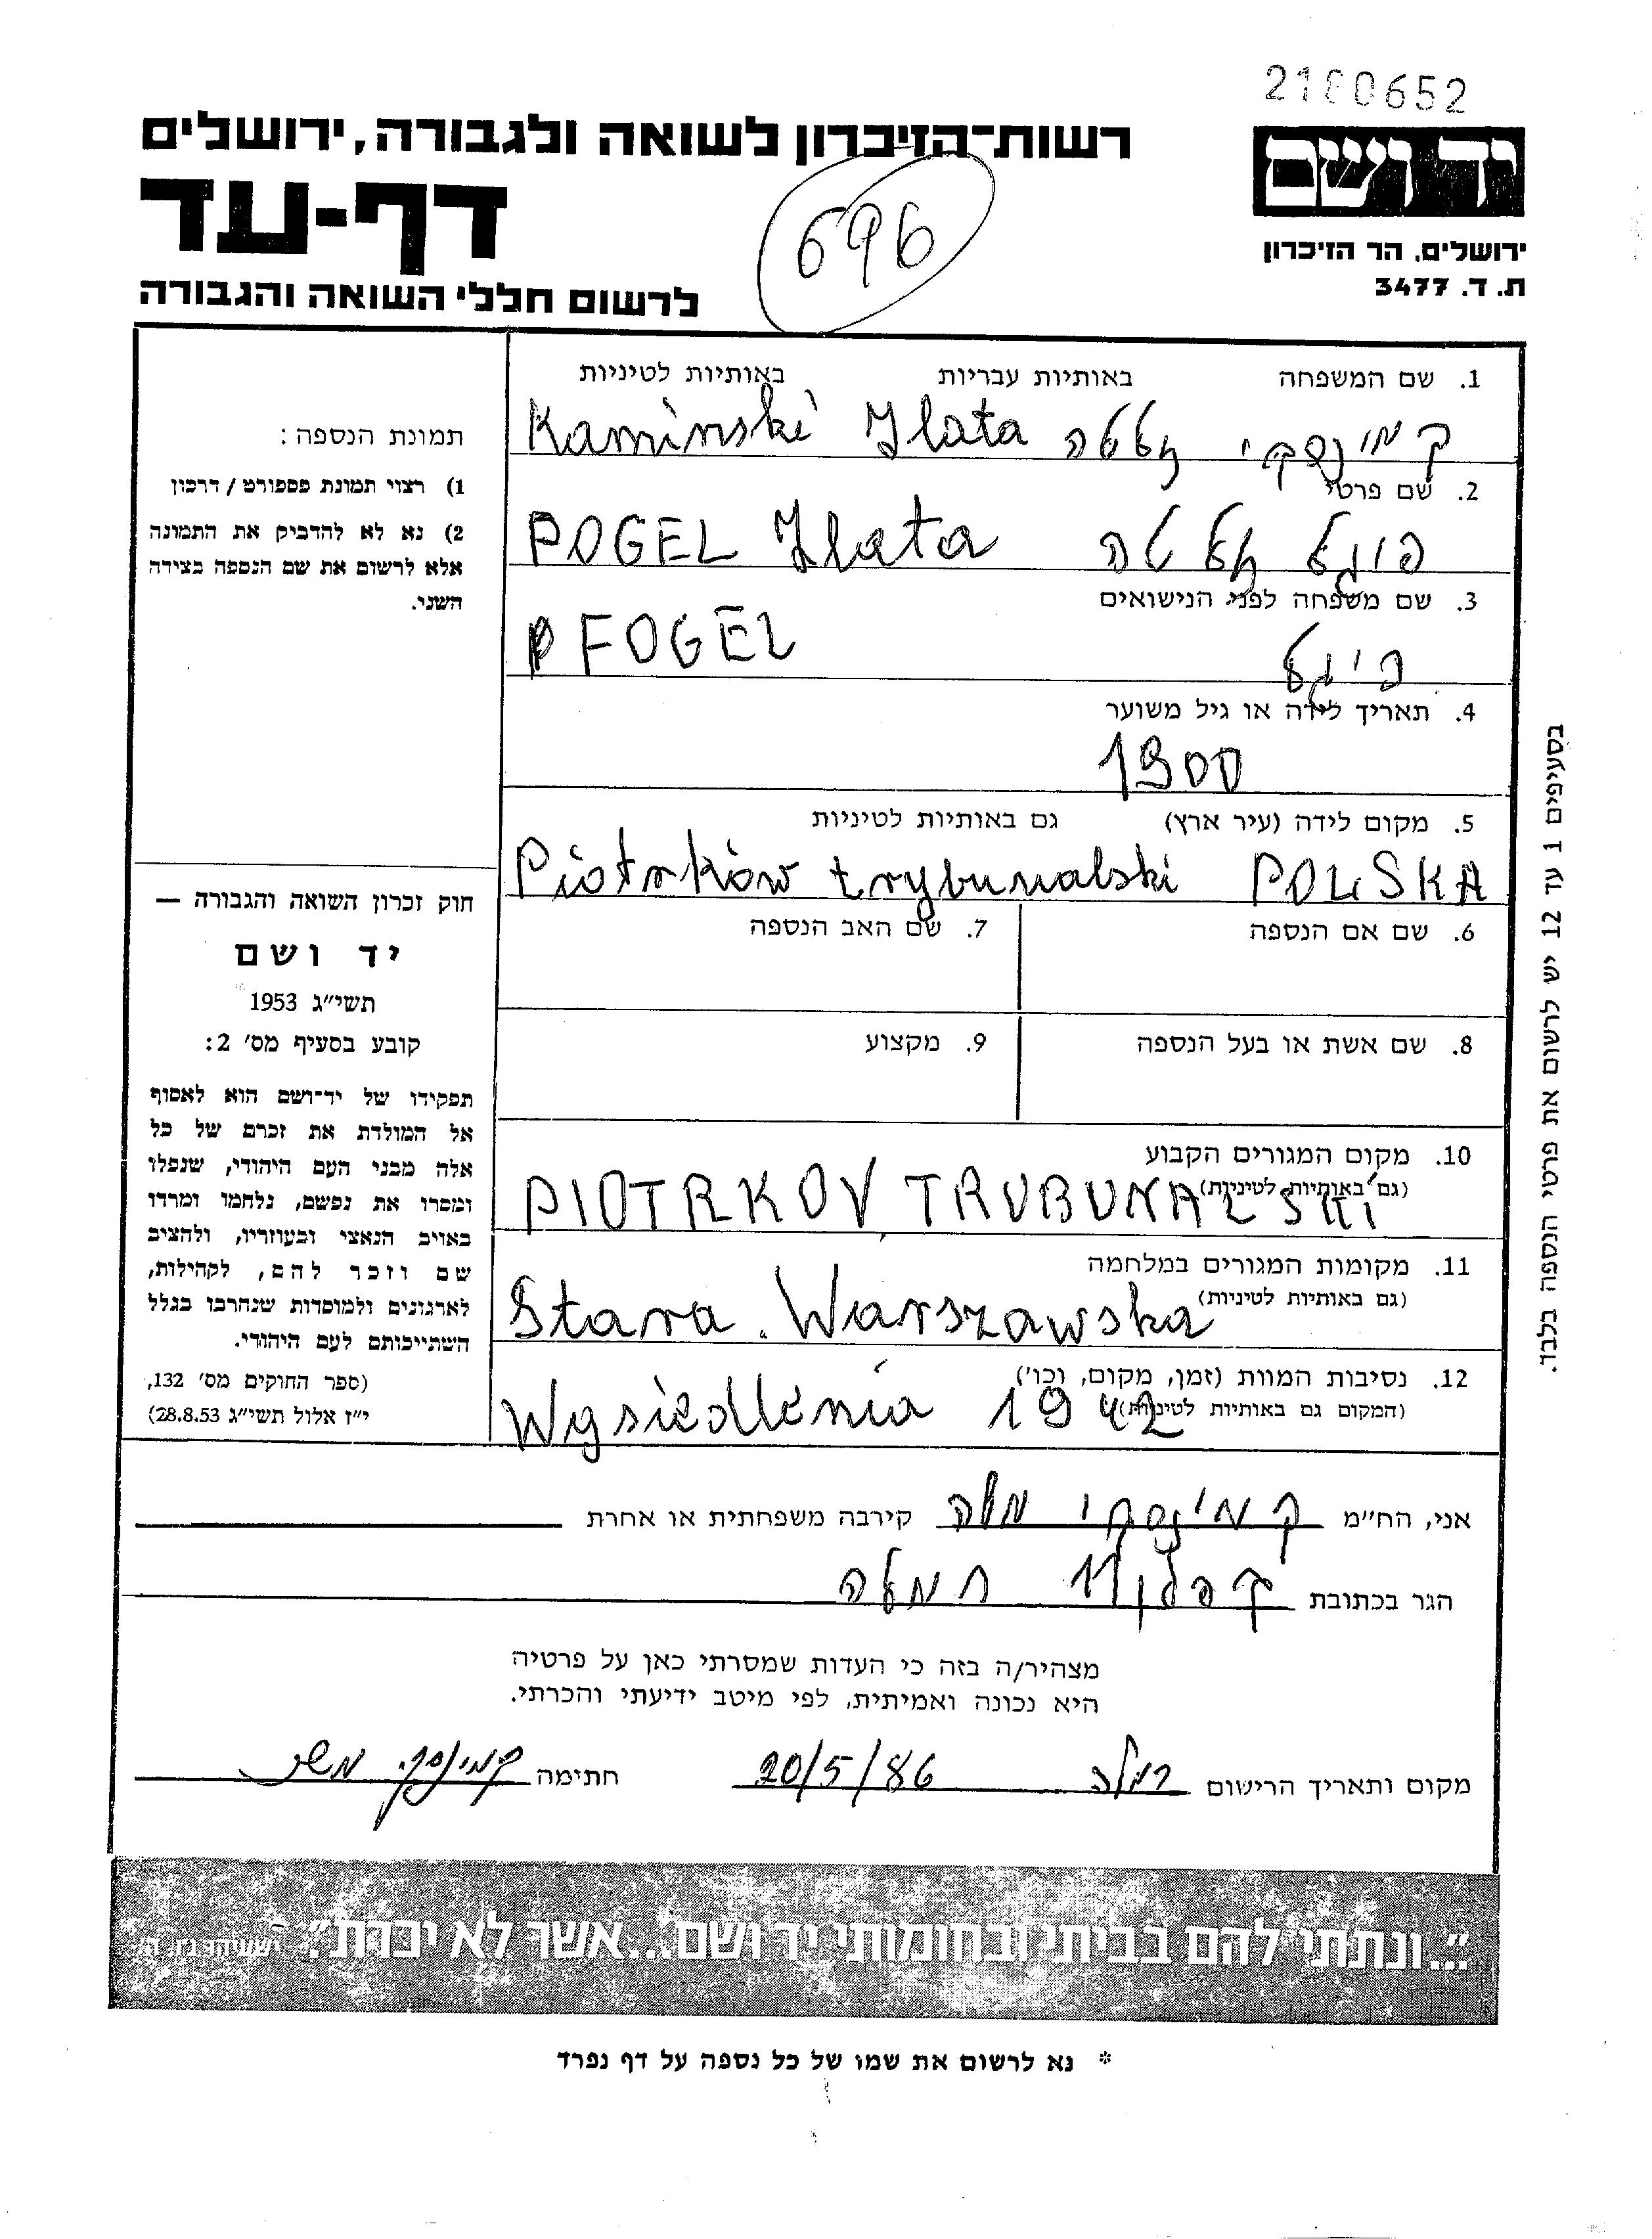 2180652
רשות־הזיכרון לשואה ולגבורה, ירושלים
דף-עד
לרשום חללי השואה והגבורה
696
יד ושם
ירושלים, הר הזיכרון
ת. ד. 3477
1. שם המשפחה באותיות עבריות באותיות לטיניות
קמינסקי זלטה Kaminski Zlata
2. שם פרטי
פוגל זלטה POGEL Zlata
3. שם משפחה לפני הנישואים
פיגל PFOGEL
4. תאריך לידה או גיל משוער
1900
5. מקום לידה (עיר ארץ) גם באותיות לטיניות
Piotrków trybunalski POLSKA
6. שם אם הנספה
7. שם האב הנספה
8. שם אשת או בעל הנספה
9. מקצוע
10. מקום המגורים הקבוע
(גם באותיות לטיניות)
PIOTRKOV TRUBUNALSKI
11. מקומות המגורים במלחמה
(גם באותיות לטיניות)
Stara. Warszawska
12. נסיבות המוות (זמן, מקום, וכו')
(המקום גם באותיות לטיניות)
Wysiedlenia 1942
תמונת הנספה:
1) רצוי תמונת פספורט / דרכון
2) נא לא להדביק את התמונה
אלא לרשום את שם הנספה בצידה
השני.
חוק זכרון השואה והגבורה —
יד ושם
תשי״ג 1953
קובע בסעיף מס׳ 2:
תפקידו של יד־ושם הוא לאסוף
אל המולדת את זכרם של כל
אלה מבני העם היהודי, שנפלו
ומסרו את נפשם, נלחמו ומרדו
באויב הנאצי ובעוזריו, ולהציב
שם וזכר להם, לקהילות,
לארגונים ולמוסדות שנחרבו בגלל
השתייכותם לעם היהודי.
(ספר החוקים מס׳ 132,
י״ז אלול תשי״ג 28.8.53)
בסעיפים 1 עד 12 יש לרשום את פרטי הנספה בלבד.
אני, הח״מ קמינסקי משה קירבה משפחתית או אחרת
הגר בכתובת רמלה
מצהיר/ה בזה כי העדות שמסרתי כאן על פרטיה
היא נכונה ואמיתית, לפי מיטב ידיעתי והכרתי.
מקום ותאריך הרישום רמלה 20/5/86 חתימה קמינסקי משה
״...ונתתי להם בביתי ובחומותי יד ושם...אשר לא יכרת״. ישעיהו נו, ה׳
* נא לרשום את שמו של כל נספה על דף נפרד